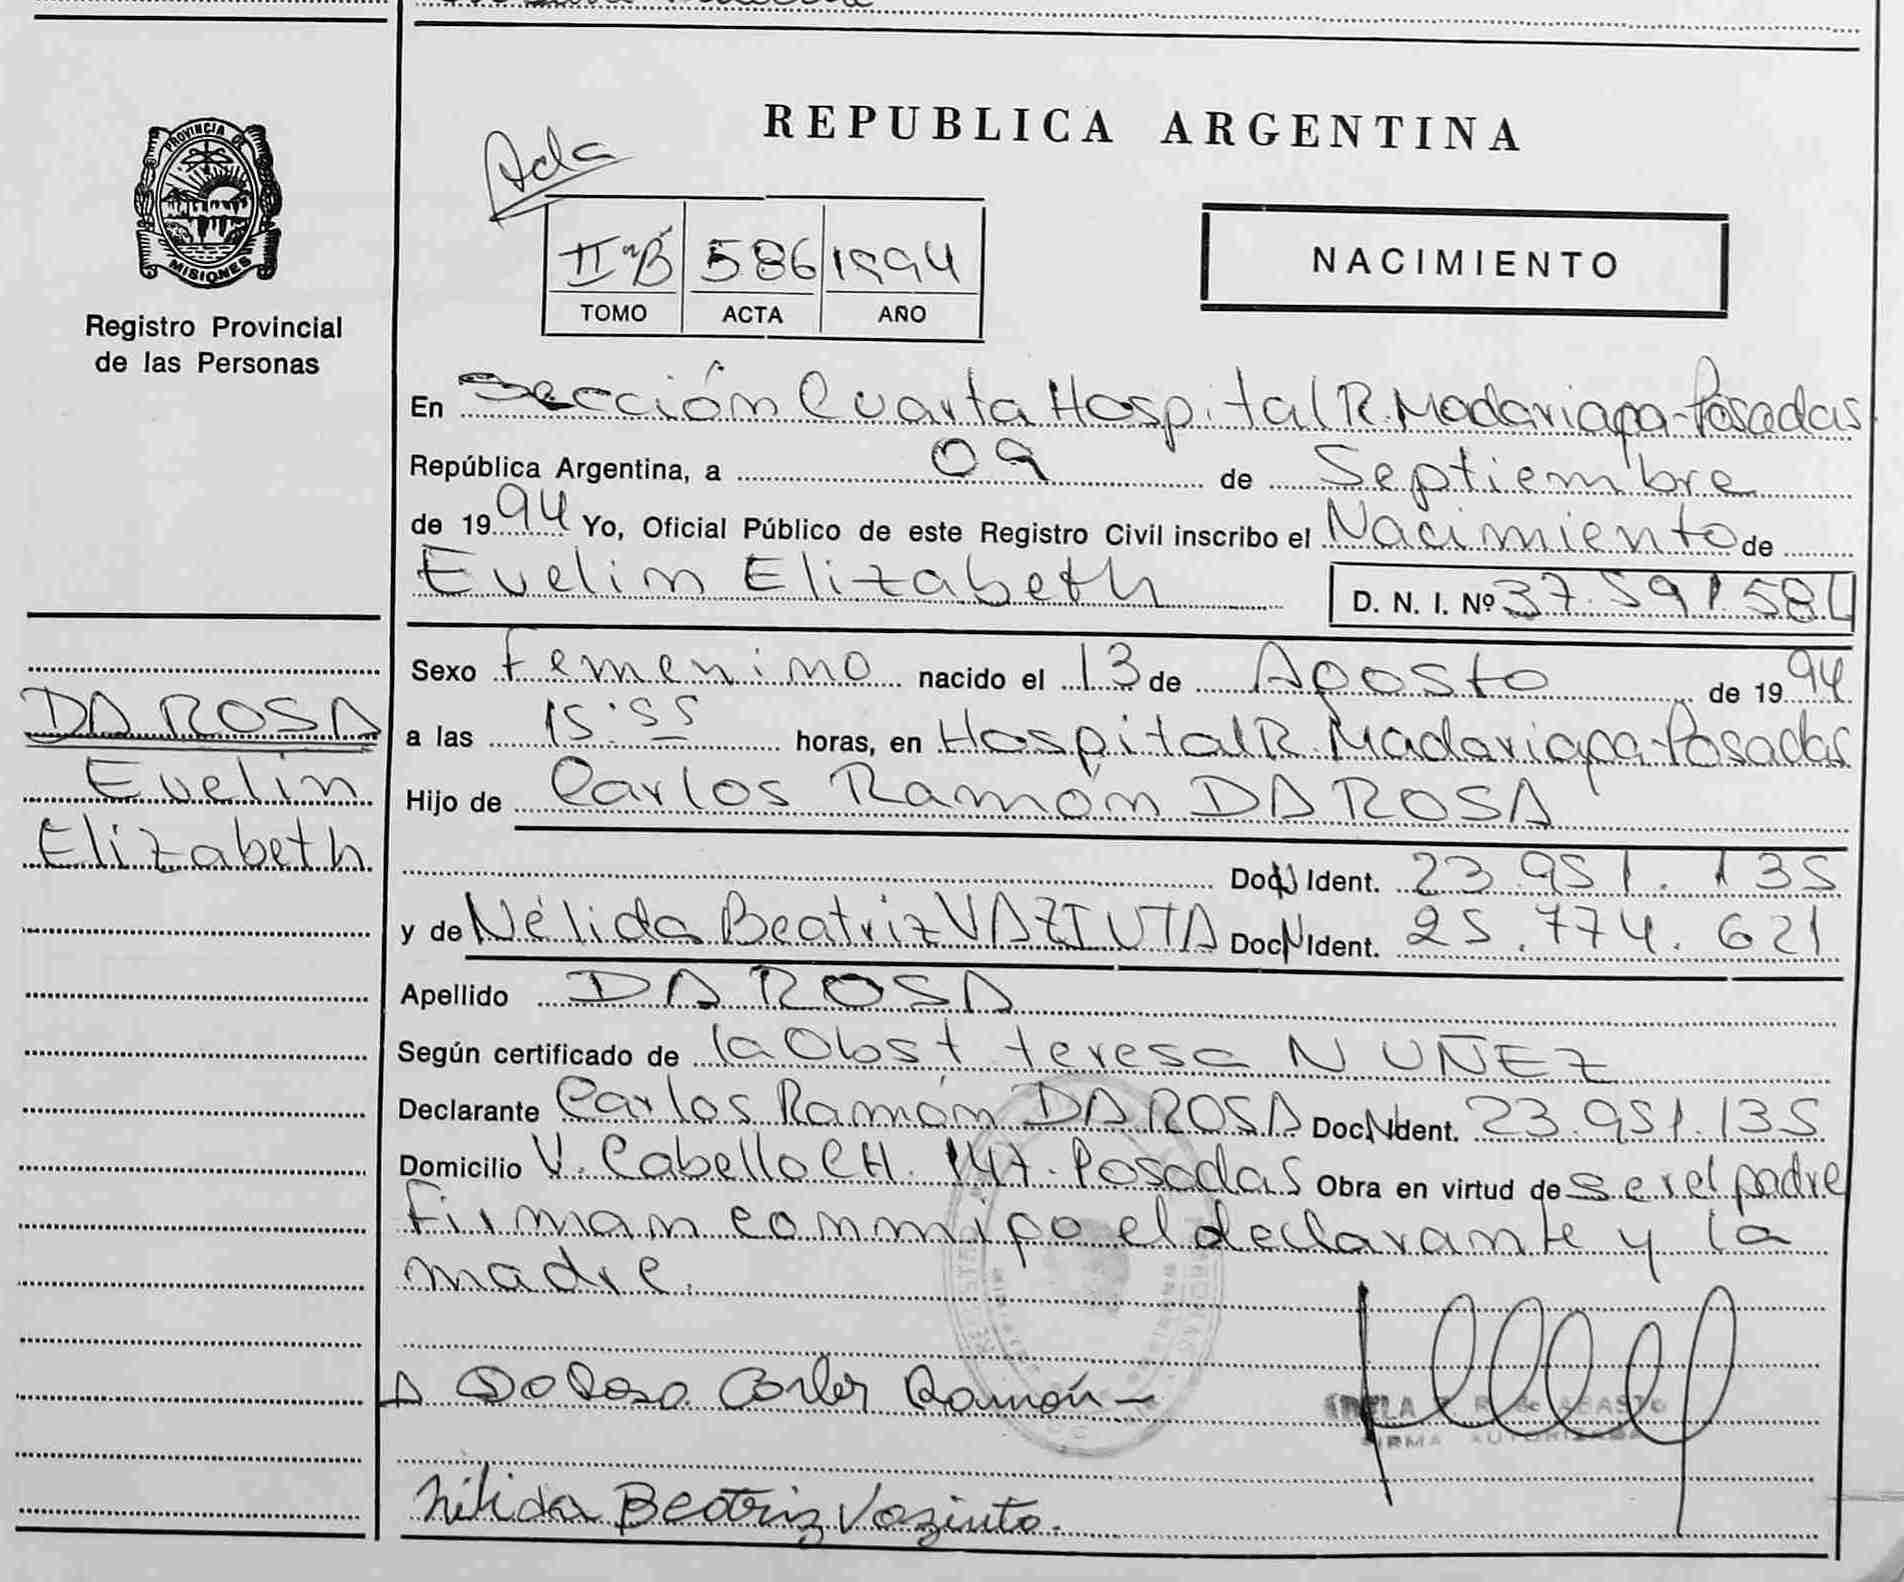 REPUBLICA ARGENTINA
PROVINCIA DE
MISIONES
Registro Provincial
de las Personas
II "B" 586 1994
TOMO ACTA AÑO
NACIMIENTO
En Sección Cuarta Hospital R. Madariaga-Posadas
República Argentina, a 09 de Septiembre
de 1994 Yo, Oficial Público de este Registro Civil inscribo el Nacimiento de
Evelin Elizabeth D. N. I. Nº 37.591.58
Sexo Femenino nacido el 13 de Agosto de 1994
a las 15:55 horas, en Hospital R. Madariaga-Posadas
Hijo de Carlos Ramón DA ROSA
Doc. Ident. 23.951.135
y de Nélida Beatriz VAZIUTA Doc. Ident. 25.774.621
Apellido DA ROSA
Según certificado de la Obst teresa NUÑEZ
Declarante Carlos Ramón DA ROSA Doc. Ident. 23.951.135
Domicilio V. Cabello CH. 147. Posadas Obra en virtud de ser el padre
Firman conmigo el declarante y la
madre.
DA ROSA
Evelin
Elizabeth
Da Rosa Carlos Ramón
FIRMA AUTORIZADA
Nélida Beatriz Vaziuta.